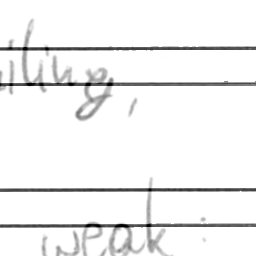 iling,
weak :